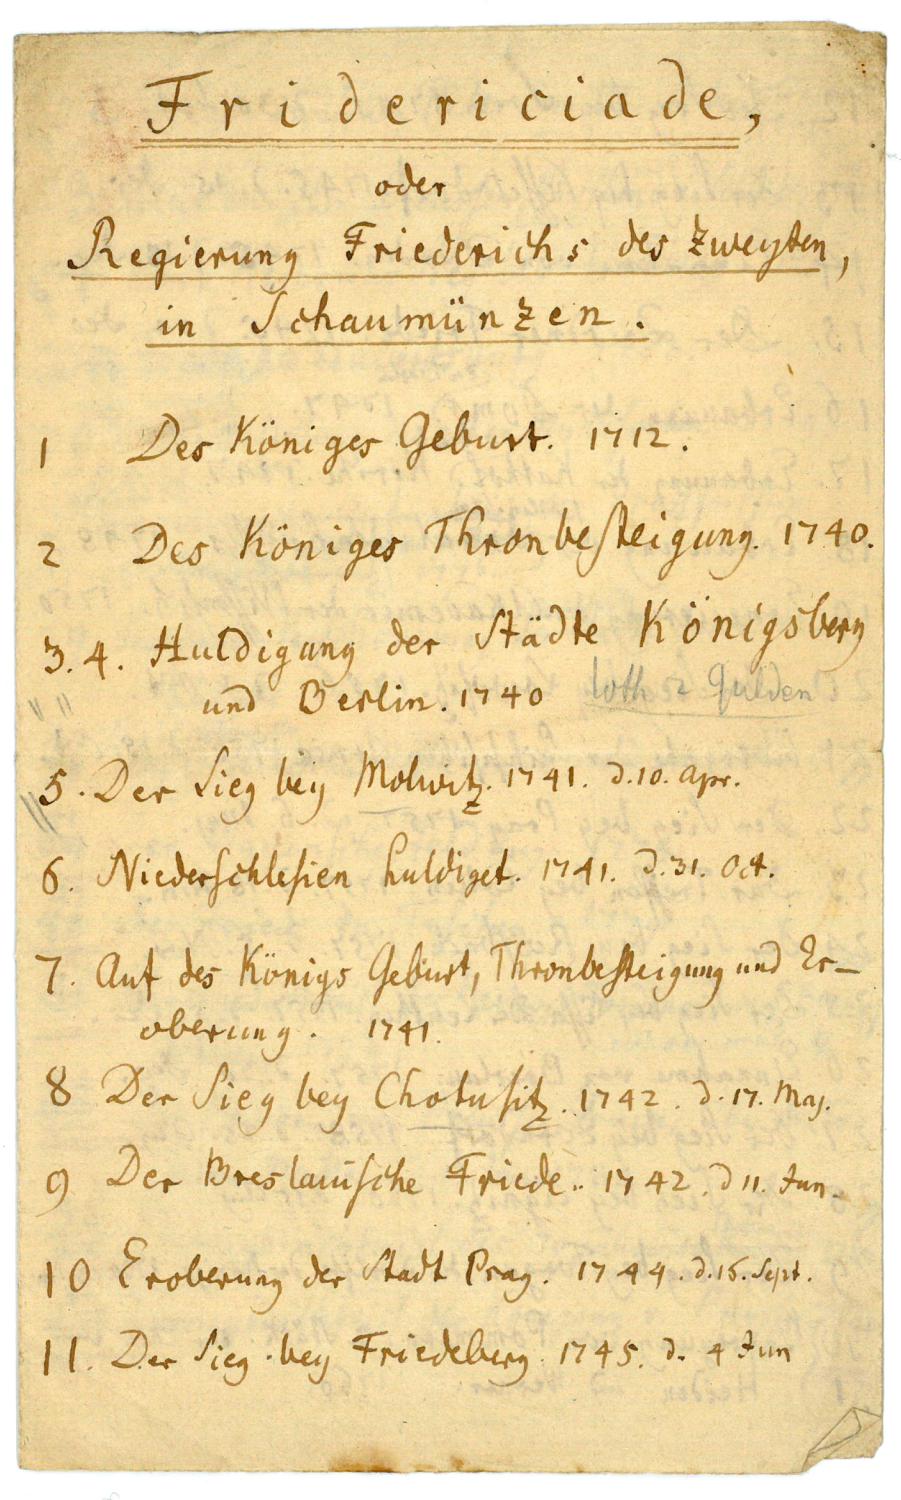 Fridericiade,
oder
Regierung Friederichs des Zweyten,
in Schaumünzen.
1 Des Königes Geburt. 1712.
2 Des Königes Thronbesteigung. 1740.
3. 4. Huldigung der Städte Königsberg
und Berlin. 1740 loth 2 Gulden
5. Der Sieg bey Molwitz. 1741. d. 10. Apr.
6. Niederschlesien huldiget. 1741. d. 31. Oct.
7. Auf des Königs Geburt, Thronbesteigung und Er-
oberung. 1741.
8 Der Sieg bey Chotusitz. 1742. d. 17. May.
9 Der Breslauische Friede. 1742. d 11. Jun.
10 Eroberung der Stadt Prag. 1744. d. 16. Sept.
11. Der Sieg bey Friedeberg. 1745. d. 4 Jun